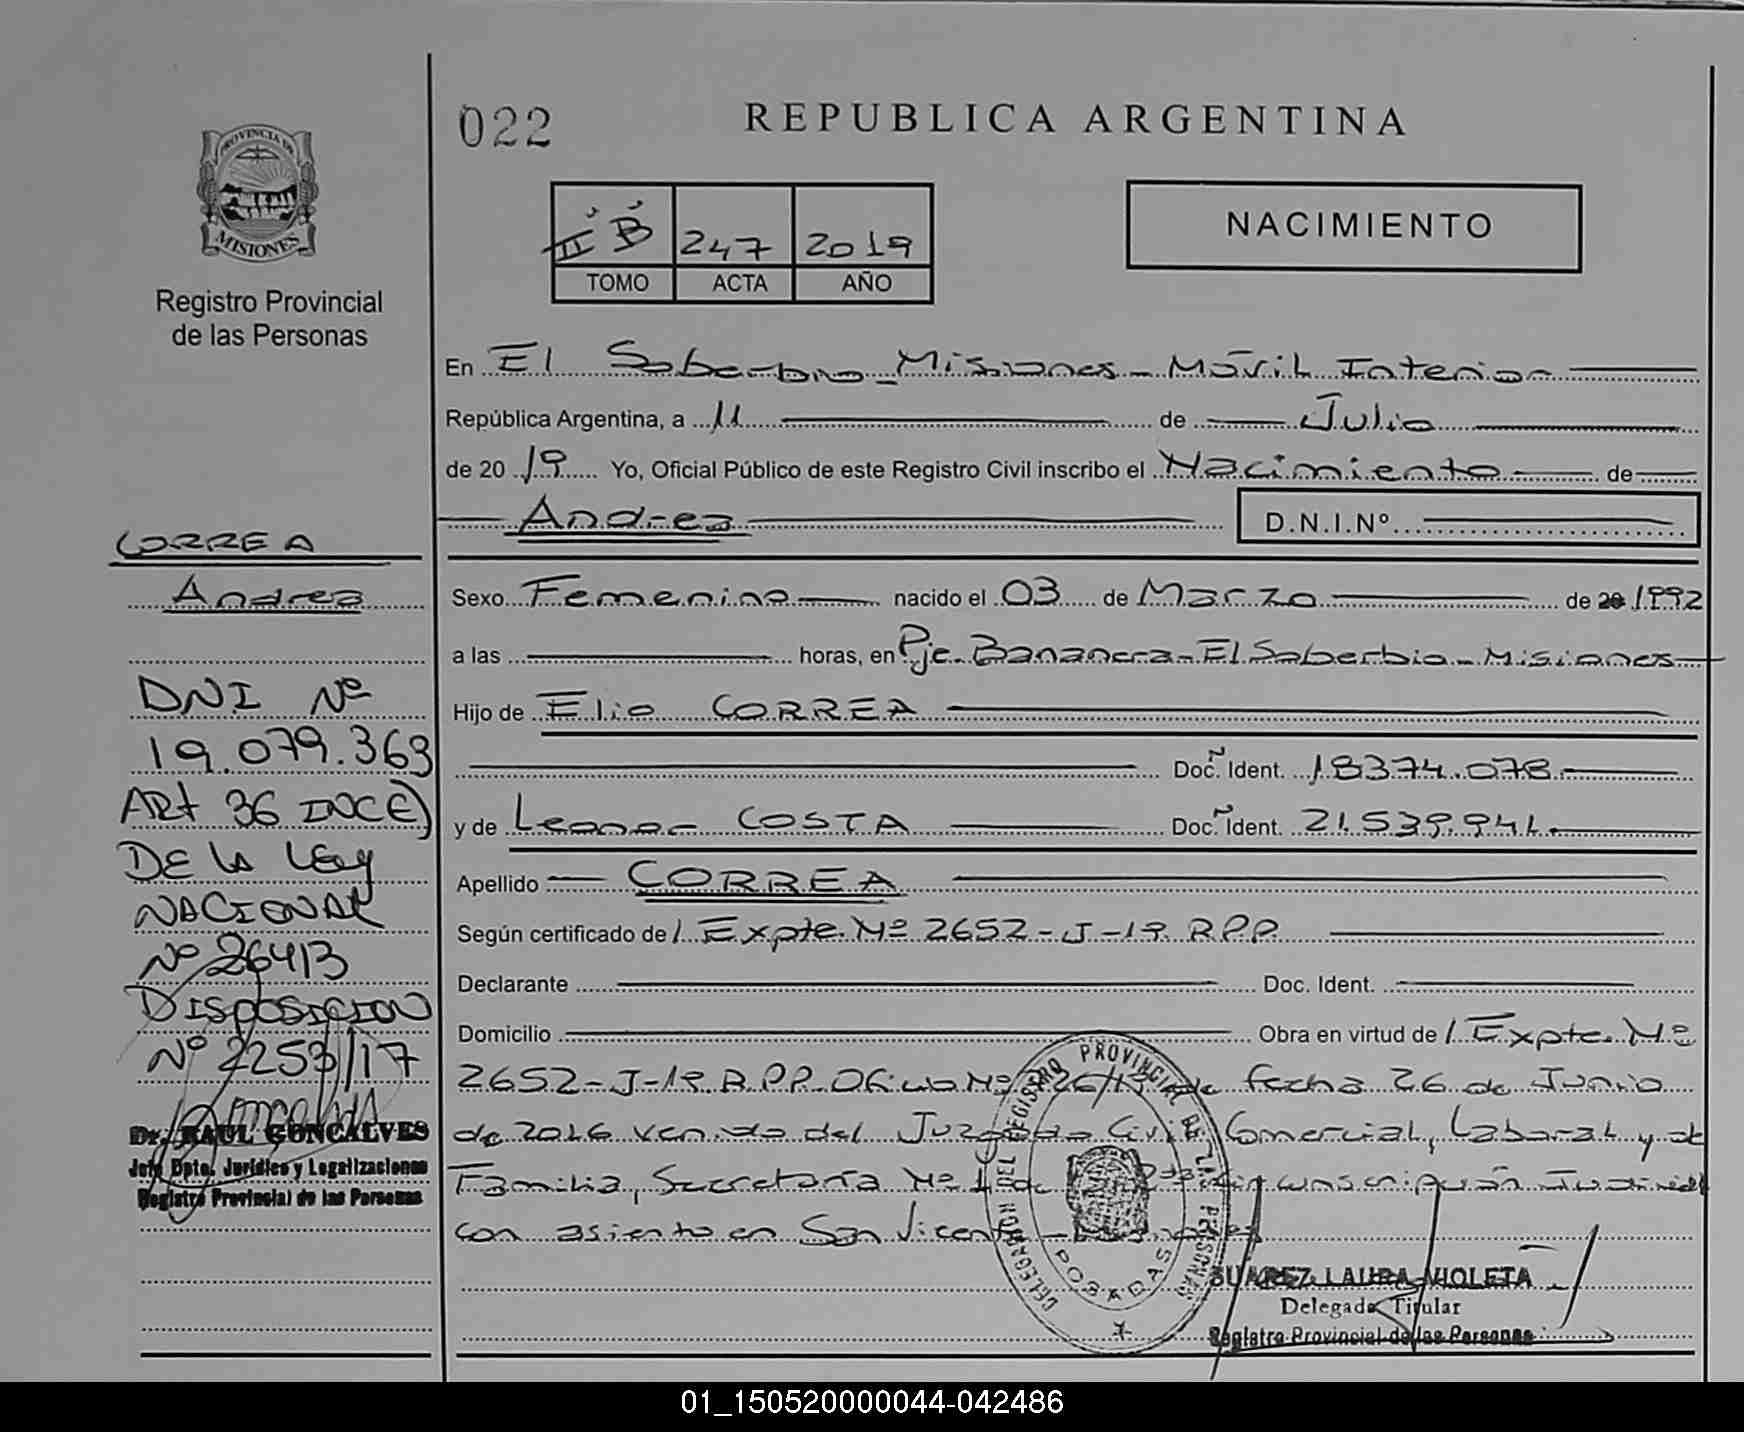 022
REPUBLICA ARGENTINA
PROVINCIA DE
MISIONES
Registro Provincial
de las Personas
II B 247 2019
TOMO ACTA AÑO
NACIMIENTO
En El Soberbio - Misiones - Móvil Interior
República Argentina, a 11 de Julio
de 20 19 Yo, Oficial Público de este Registro Civil inscribo el Nacimiento de
Andrea D.N.I.Nº
CORREA
Andrea
DNI Nº
19.079.363
ART 36 INC E)
DE LA LEY
NACIONAL
Nº 26413
DISPOSICION
Nº 2253/17
Dr. RAUL GONCALVES
Jefe Dpto. Jurídico y Legalizaciones
Registro Provincial de las Personas
Sexo Femenino nacido el 03 de Marzo de 20 1992
a las horas, en Pje. Bananera - El Soberbio - Misiones
Hijo de Elio CORREA
Doc. Ident. 18374.078
y de Leonor COSTA Doc. Ident. 21.539.941.
Apellido CORREA
Según certificado de / Expte. Nº 2652-J-19. R.P.P.
Declarante Doc. Ident.
Domicilio Obra en virtud de / Expte. Nº
2652-J-19. R.P.P. Oficio Nº de fecha 26 de Junio
de 2016 venido del Juzgado Civil Comercial, Laboral y de
Familia, Secretaría Nº 1 de Circunscripción Judicial
con asiento en San Vicente - Misiones
DELEGACION DEL REGISTRO PROVINCIAL DE LAS PERSONAS
POSADAS
SUAREZ LAURA VIOLETA
Delegada Titular
Registro Provincial de las Personas
01_150520000044-042486